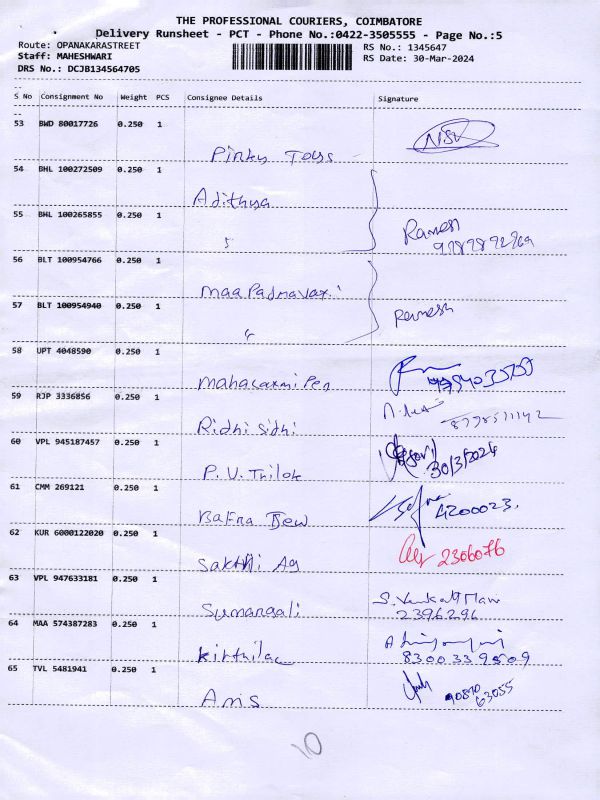 THE PROFESSIONAL COURIERS, COIMBATORE
Delivery Runsheet - PCT - Phone No.:0422-3505555 - Page No.:5
Route: OPANAKARASTREET RS No.: 1345647
Staff: MAHESHWARI RS Date: 30-Mar-2024
DRS No.: DCJB134564705
S No Consignment No Weight PCS Consignee Details Signature
53 BWD 80017726 0.250 1
Pinky Toys
54 BHL 100272509 0.250 1
Adithya
55 BHL 100265855 0.250 1
Ramesh
56 BLT 100954766 0.250 1
maa Padmavaxi
57 BLT 100954940 0.250 1
Ramesh
58 UPT 4048590 0.250 1
mahalaxmi Pen
59 RJP 3336856 0.250 1
Ridhi Sidhi
60 VPL 945187457 0.250 1
P.V. Trilok 30/3/2024
61 CMM 269121 0.250 1
Bafna Jew 4200023.
62 KUR 6000122020 0.250 1
Sakthi Ag 2306076
63 VPL 947633181 0.250 1
Sumangali 2396296
64 MAA 574387283 0.250 1
Kirthilac 8300339509
65 TVL 5481941 0.250 1
Aris 90870
63055
10